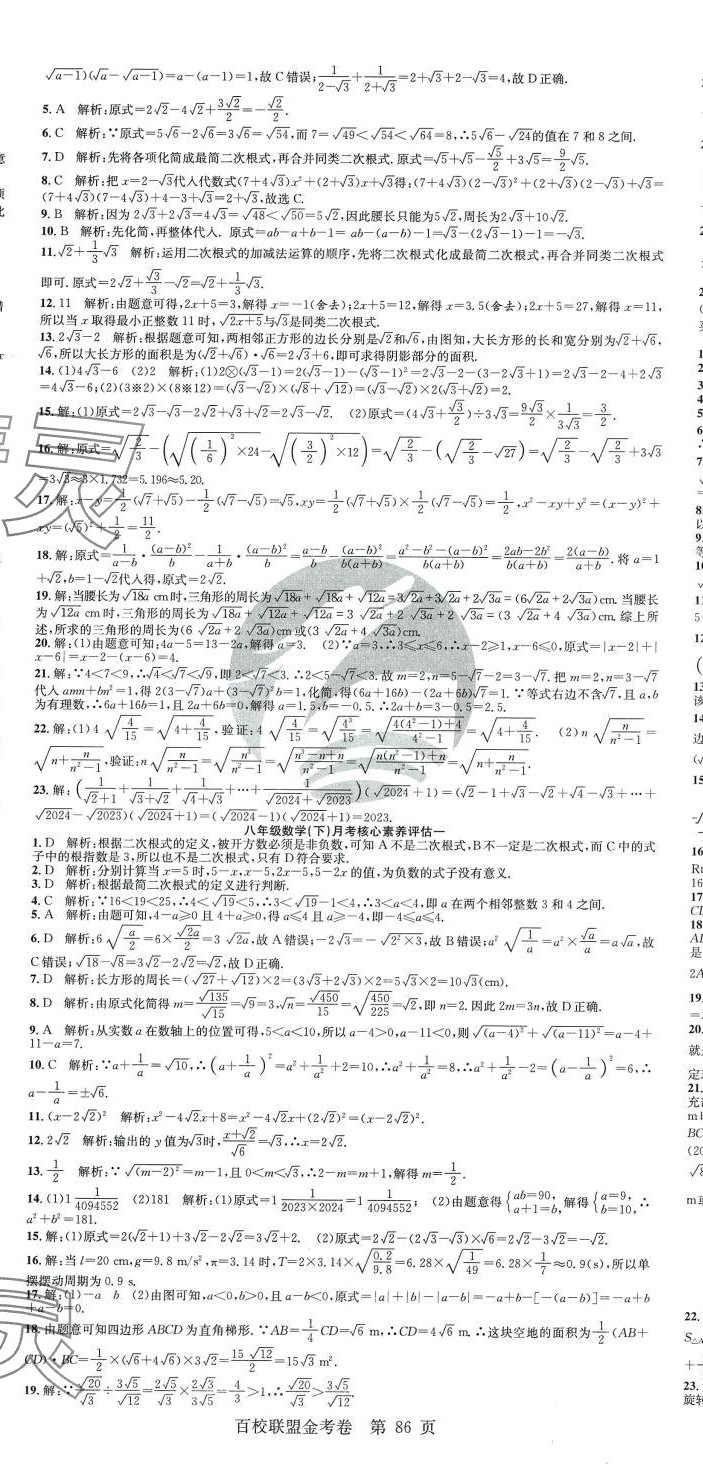 √(a-1))(√a-√(a-1))=a-(a-1)=1,故C错误;1/(2-√3)+1/(2+√3)=2+√3+2-√3=4,故D正确.
5. A 解析:原式=2√2-4√2+3√2/2=-√2/2.
6. C 解析:∵原式=5√6-2√6=3√6=√54,而7=√49<√54<√64=8,∴5√6-√24的值在7和8之间.
7. D 解析:先将各项化简成最简二次根式,再合并同类二次根式.原式=√5+√5-√5/2+3√5=9/2√5.
8. C 解析:把x=2-√3代入代数式(7+4√3)x²+(2+√3)x+√3得:(7+4√3)(2-√3)²+(2+√3)(2-√3)+√3=
(7+4√3)(7-4√3)+4-3+√3=2+√3,故选C.
9. B 解析:因为2√3+2√3=4√3=√48<√50=5√2,因此腰长只能为5√2,周长为2√3+10√2.
10. B 解析:先化简,再整体代入.原式=ab-a+b-1=ab-(a-b)-1=√3-(2√3-1)-1=-√3.
11.√2+1/3√3 解析:运用二次根式的加减法运算的顺序,先将二次根式化成最简二次根式,再合并同类二次根式
即可.原式=2√2+√3/3-√2=√2+1/3√3.
12. 11 解析:由题意可得,2x+5=3,解得x=-1(舍去);2x+5=12,解得x=3.5(舍去);2x+5=27,解得x=11,
所以当x取得最小正整数11时,√(2x+5)与√3是同类二次根式.
13. 2√3-2 解析:根据题意可知,两相邻正方形的边长分别是√2和√6,由图知,大长方形的长和宽分别为√2+√6,
√6,所以大长方形的面积是为(√2+√6)·√6=2√3+6,即可求得阴影部分的面积.
14. (1)4√3-6 (2)2 解析:(1)2⊗(√3-1)=2(√3-1)-(√3-1)²=2√3-2-(3-2√3+1)=2√3-2-4+2√3
=4√3-6;(2)(3※2)×(8※12)=(√3-√2)×(√8+√12)=(√3-√2)×2(√3+√2)=2.
15. 解:(1)原式=2√3-√3-2√2+√3+√2=2√3-√2. (2)原式=(4√3+√3/2)÷3√3=9√3/2×1/(3√3)=3/2.
16. 解:原式=√(2/3)-(√((1/6)²×24)-√((3/2)²×12))=√(2/3)-(√(2/3)-√27)=√(2/3)-√(2/3)+3√3
=3√3≈3×1.732=5.196≈5.20.
17. 解:x-y=1/2(√7+√5)-1/2(√7-√5)=√5,xy=1/2(√7+√5)×1/2(√7-√5)=1/2,x²-xy+y²=(x-y)²+
xy=(√5)²+1/2=11/2.
18. 解:原式=1/(a-b)·(a-b)²/b-1/(a+b)·(a-b)²/b=(a-b)/b-(a-b)²/(b(a+b))=(a²-b²-(a-b)²)/(b(a+b))=(2ab-2b²)/(b(a+b))=2(a-b)/(a+b).将a=1
+√2,b=1-√2代入得,原式=2√2.
19. 解:当腰长为√(18a) cm时,三角形的周长为√(18a)+√(18a)+√(12a)=3√(2a)+3√(2a)+2√(3a)=(6√(2a)+2√(3a))cm.当腰长
为√(12a) cm时,三角形的周长为√(18a)+√(12a)+√(12a)=3√(2a)+2√(3a)+2√(3a)=(3√(2a)+4√(3a))cm.综上所
述,所求的三角形的周长为(6√(2a)+2√(3a))cm或(3√(2a)+4√(3a))cm.
20. 解:(1)由题意可知:4a-5=13-2a,解得a=3. (2)∵a=3,∴3≤x≤6,∴x-2≥1,x-6≤0,原式=|x-2|+|
x-6|=x-2-(x-6)=4.
21. 解:∵4<7<9,∴√4<√7<√9,即2<√7<3.∴2<5-√7<3.故m=2,n=5-√7-2=3-√7.把m=2,n=3-√7
代入amn+bn²=1,得2(3-√7)a+(3-√7)²b=1,化简,得(6a+16b)-(2a+6b)√7=1.∵等式右边不含√7,且a,b
为有理数,∴6a+16b=1,且2a+6b=0,解得a=1.5,b=-0.5.∴2a+b=3-0.5=2.5.
22. 解:(1)4√(4/15)=√(4+4/15),验证:4√(4/15)=√(4³/15)=√((4(4²-1)+4)/(4²-1))=√(4+4/15). (2)n√(n/(n²-1))=
√(n+n/(n²-1)),验证:n√(n/(n²-1))=√(n³/(n²-1))=√((n³-n+n)/(n²-1))=√((n(n²-1)+n)/(n²-1))=√(n+n/(n²-1)).
23. 解:(1/(√2+1)+1/(√3+√2)+1/(√4+√3)+…+1/(√2024+√2023))(√2024+1)=(√2-1+√3-√2+√4-√3+…+
√2024-√2023)(√2024+1)=(√2024-1)(√2024+1)=2023.
八年级数学(下)月考核心素养评估一
1. D 解析:根据二次根式的定义,被开方数必须是非负数,可知A不是二次根式,B不一定是二次根式,而C中的式
子中的根指数是3,所以也不是二次根式,只有D符合要求.
2. D 解析:分别计算当x=5时,5-x,x-5,2x-5,5-2x的值,为负数的式子没有意义.
3. D 解析:根据最简二次根式的定义进行判断.
4. C 解析:∵16<19<25,∴4<√19<5,∴3<√19-1<4,∴3<a<4,即a在两个相邻整数3和4之间.
5. A 解析:由题可知,4-a≥0且4+a≥0,得a≤4且a≥-4,即-4≤a≤4.
6. D 解析:6√(a/2)=6×√(2a)/2=3√(2a),故A错误;-2√3=-√(2²×3),故B错误;a²√(1/a)=a²×√a/a=a√a,故
C错误;√18-√8=3√2-2√2=√2,故D正确.
7. D 解析:长方形的周长=(√27+√12)×2=(3√3+2√3)×2=5√3×2=10√3(cm).
8. D 解析:由原式化简得m=√135/√15=√9=3,√n=√450/√225=√(450/225)=√2,即n=2.因此2m=3n,故D正确.
9. A 解析:从实数a在数轴上的位置可得,5<a<10,所以a-4>0,a-11<0,则√((a-4)²)+√((a-11)²)=a-4+
11-a=7.
10. C 解析:∵a+1/a=√10,∴(a+1/a)²=a²+1/a²+2=10,∴a²+1/a²=8,∴a²+1/a²-2=(a-1/a)²=6,∴
a-1/a=±√6.
11. (x-2√2)² 解析:x²-4√2x+8=x²-4√2x+(2√2)²=(x-2√2)².
12. 2√2 解析:输出的y值为√3时,(x+√2)/√6=√3,∴x=2√2.
13. 1/2 解析:∵√((m-2)²)=m-1,且0<m<√3,∴2-m=m+1,解得m=1/2.
14. (1)1 1/4094552 (2)181 解析:(1)原式=1 1/(2023×2024)=1 1/4094552; (2)由题意得{ab=90, a+1=b,解得{a=9, b=10,∴
a²+b²=181.
15. 解:(1)原式=2(√2+1)+3√2-2√2=3√2+2. (2)原式=2√2-(2√3-√3)×√6=2√2-3√2=-√2.
16. 解:当l=20 cm,g=9.8 m/s²,π=3.14时,T=2×3.14×√(0.2/9.8)=6.28×√(1/49)=6.28×1/7≈0.9(s),所以单
摆摆动周期为0.9 s.
17. 解:(1)-a b (2)由图可知,a<0,b>0,且a-b<0,原式=|a|+|b|-|a-b|=-a+b-[-(a-b)]=-a+b
+a-b=0.
18. 由题意可知四边形ABCD为直角梯形.∵AB=1/4CD=√6 m,∴CD=4√6 m.∴这块空地的面积为1/2(AB+
CD)·BC=1/2×(√6+4√6)×3√2=15√12/2=15√3 m².
19. 解:∵√20/√3÷3√5/√12=2√5/√3×2√3/3√5=4/3>1,∴√20/√3>3√5/√12.
百校联盟金考卷 第 86 页